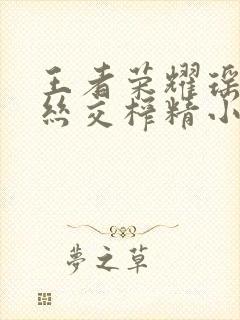 王者荣耀瑶
丝交榨精小
夢之草